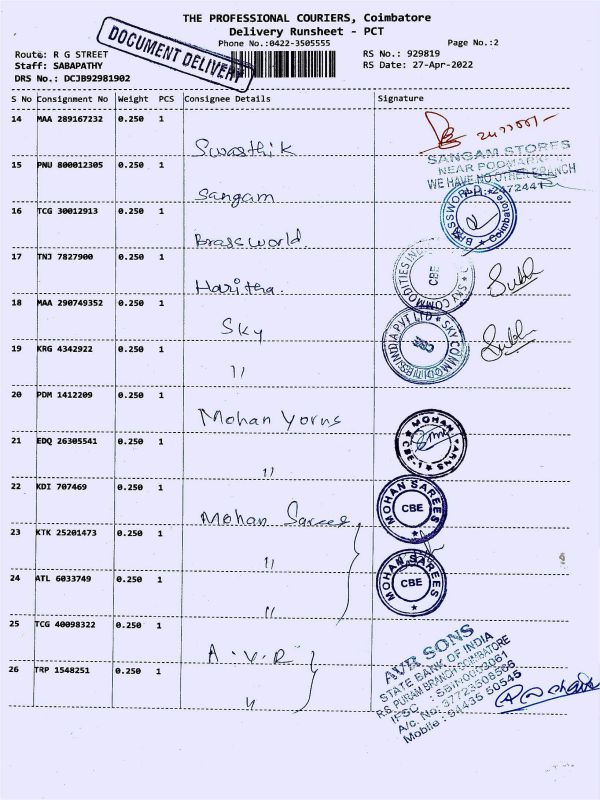 THE PROFESSIONAL COURIERS, Coimbatore
Delivery Runsheet - PCT
Phone No.:0422-3505555
Page No.:2
DOCUMENT DELIVERY
Route: R G STREET
RS No.: 929819
Staff: SABAPATHY
RS Date: 27-Apr-2022
DRS No.: DCJB92981902
S No Consignment No Weight PCS Consignee Details Signature
14 MAA 289167232 0.250 1
Swasthik
SANGAM STORES
NEAR
WE HAVE NO OTHER BRANCH
15 PNU 800012305 0.250 1
Sangam
16 TCG 30012913 0.250 1
Brassworld
BRASSWORLD * Coimbatore *
17 TNJ 7827900 0.250 1
Haritha.
SKY COMMODITIES
CBE
18 MAA 290749352 0.250 1
Sky
SKY COMMODITIES INDIA PVT LTD
CBE
19 KRG 4342922 0.250 1
11
20 PDM 1412209 0.250 1
Mohan Yarns
MOHAN YARNS
CBE-1
21 EDQ 26305541 0.250 1
11
22 KDI 707469 0.250 1
Mohan Sarees
MOHAN SAREES
CBE
23 KTK 25201473 0.250 1
11
MOHAN SAREES
CBE
24 ATL 6033749 0.250 1
11
25 TCG 40098322 0.250 1
A.V.R
AVR SONS
STATE BANK OF INDIA
R.S PURAM BRANCH COIMBATORE
26 TRP 1548251 0.250 1
11
IFSC :
A/c. No:
Mobile : 94435 50545